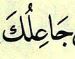 جَاعِلُكَ